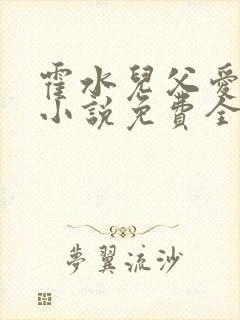 霍水兒父愛
小說免費全
夢翼流沙